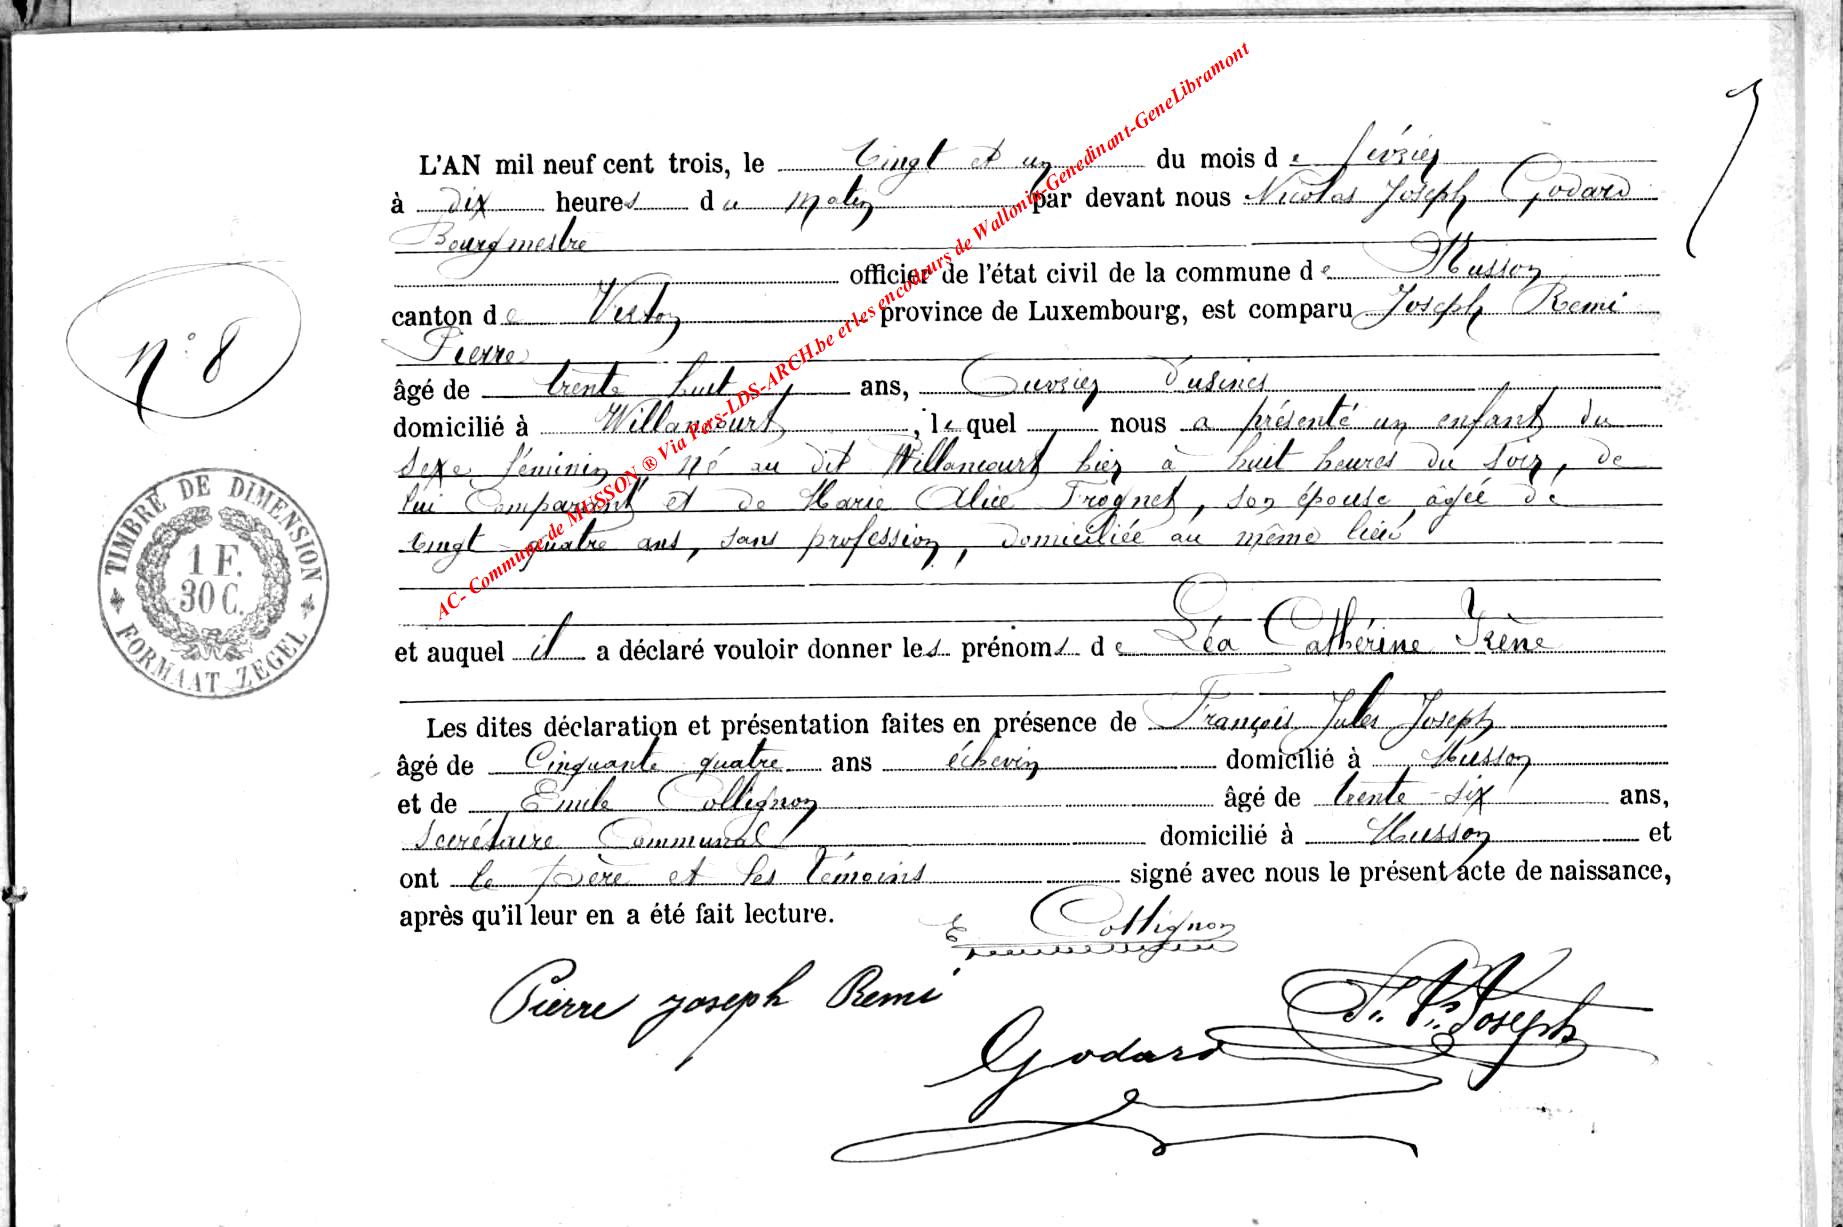 7
L'AN mil neuf cent trois, le Vingt et un du mois de février
à dix heures du matin par devant nous Nicolas Joseph Godard
Bourgmestre
officier de l'état civil de la commune de Musson
canton de Virton province de Luxembourg, est comparu Joseph Remi
Pierre
n° 8
âgé de trente huit ans, Ouvrier d'usines
domicilié à Willancourt, lequel nous a présenté un enfant du
sexe féminin né au dit Willancourt hier à huit heures du soir, de
lui Comparant et de Marie Alice Frognet, son épouse, âgée de
vingt quatre ans, sans profession, domiciliée au même lieu
TIMBRE DE DIMENSION
1 F.
30 C.
FORMAAT ZEGEL
et auquel il a déclaré vouloir donner les prénoms de Léa Cathérine Irène
Les dites déclaration et présentation faites en présence de François Jules Joseph
âgé de Cinquante quatre ans échevin domicilié à Musson
et de Emile Collignon âgé de trente-six ans,
Secrétaire Communal domicilié à Musson et
ont le père et les témoins signé avec nous le présent acte de naissance,
après qu'il leur en a été fait lecture.
E Collignon
Pierre Joseph Remi
Joseph
Godard
AC- Commune de MUSSON ® Via Pers-LDS-ARCH.be et les encodeurs de Wallonia-Genedinant-GeneLibramont